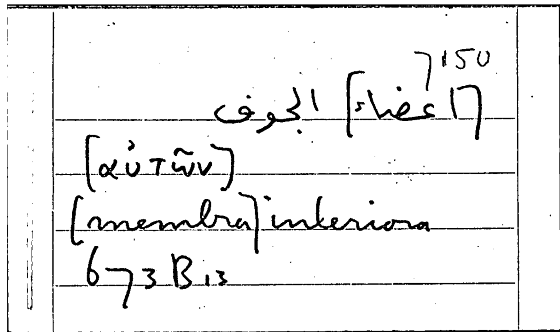 7150
[اعضاء] الجوف
[αὐτῶν]
[membra] interiora
673 B 13